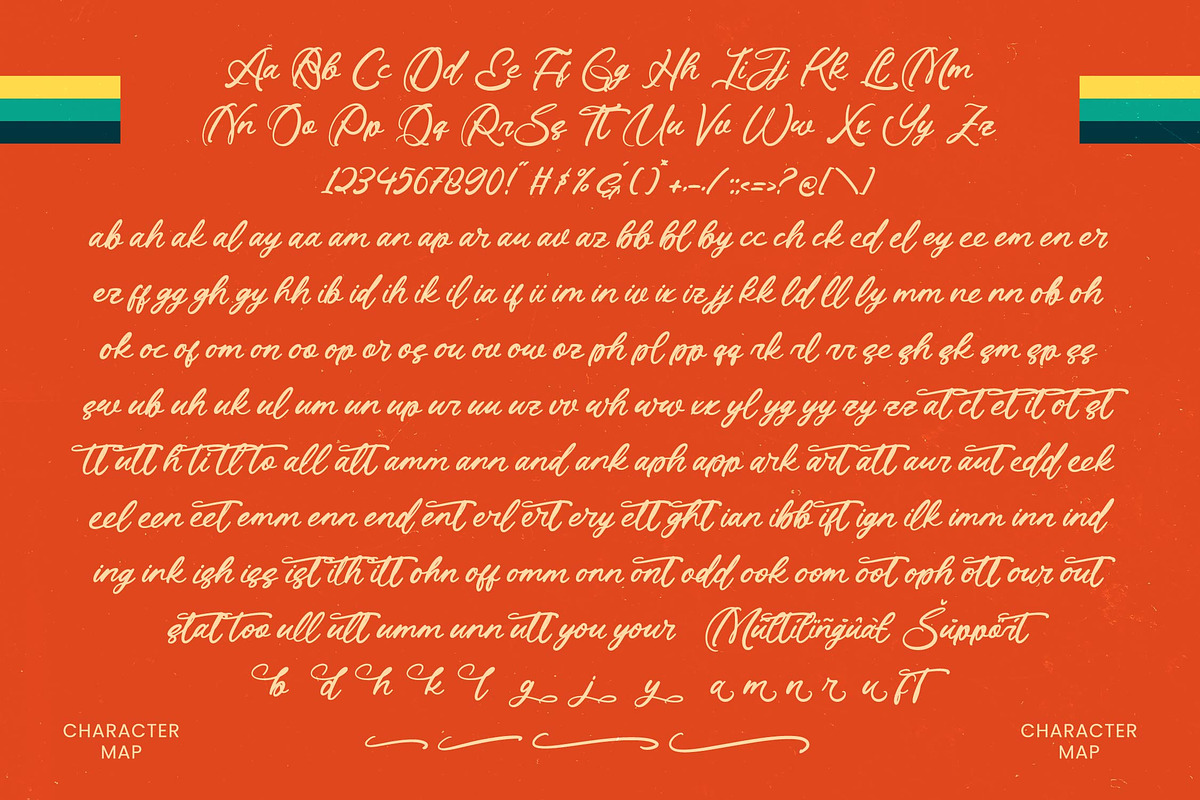 Aa Bb Cc Dd Ee Ff Gg Hh Ii Jj Kk Ll Mm
Nn Oo Pp Qq Rr Ss Tt Uu Vv Ww Xx Yy Zz
1234567890!" # $ % & ' ( ) * + , - . / : ; < = > ? @ [ \ ]
ab ah ak al ay aa am an ap ar au av az bb bl by cc ch ck ed el ey ee em en er
ez ff gg gh gy hh ib id ih ik il ia if ii im in iv ix iz jj kk ld ll ly mm ne nn ob oh
ok oc of om on oo op or os ou ov ow oz ph pl pp qq rk rl rr se sh sk sm sp ss
sw ub uh uk ul um un up ur uu uz vv wh ww xx yl yg yy zy zz at ct et it ot st
tt utt th ti tl to all alt amm ann and ank aph app ark art att aur aut edd eek
eel een eet emm enn end ent erl ert ery ett ght ian ibb ift ign ilk imm inn ind
ing ink ish iss ist ith itt ohn off omm onn ont odd ook oom oot oph ott our out
stat too ull ult umm unn utt you your Multilingual Support
b d h k l g j y a m n r u ft
CHARACTER MAP
CHARACTER MAP